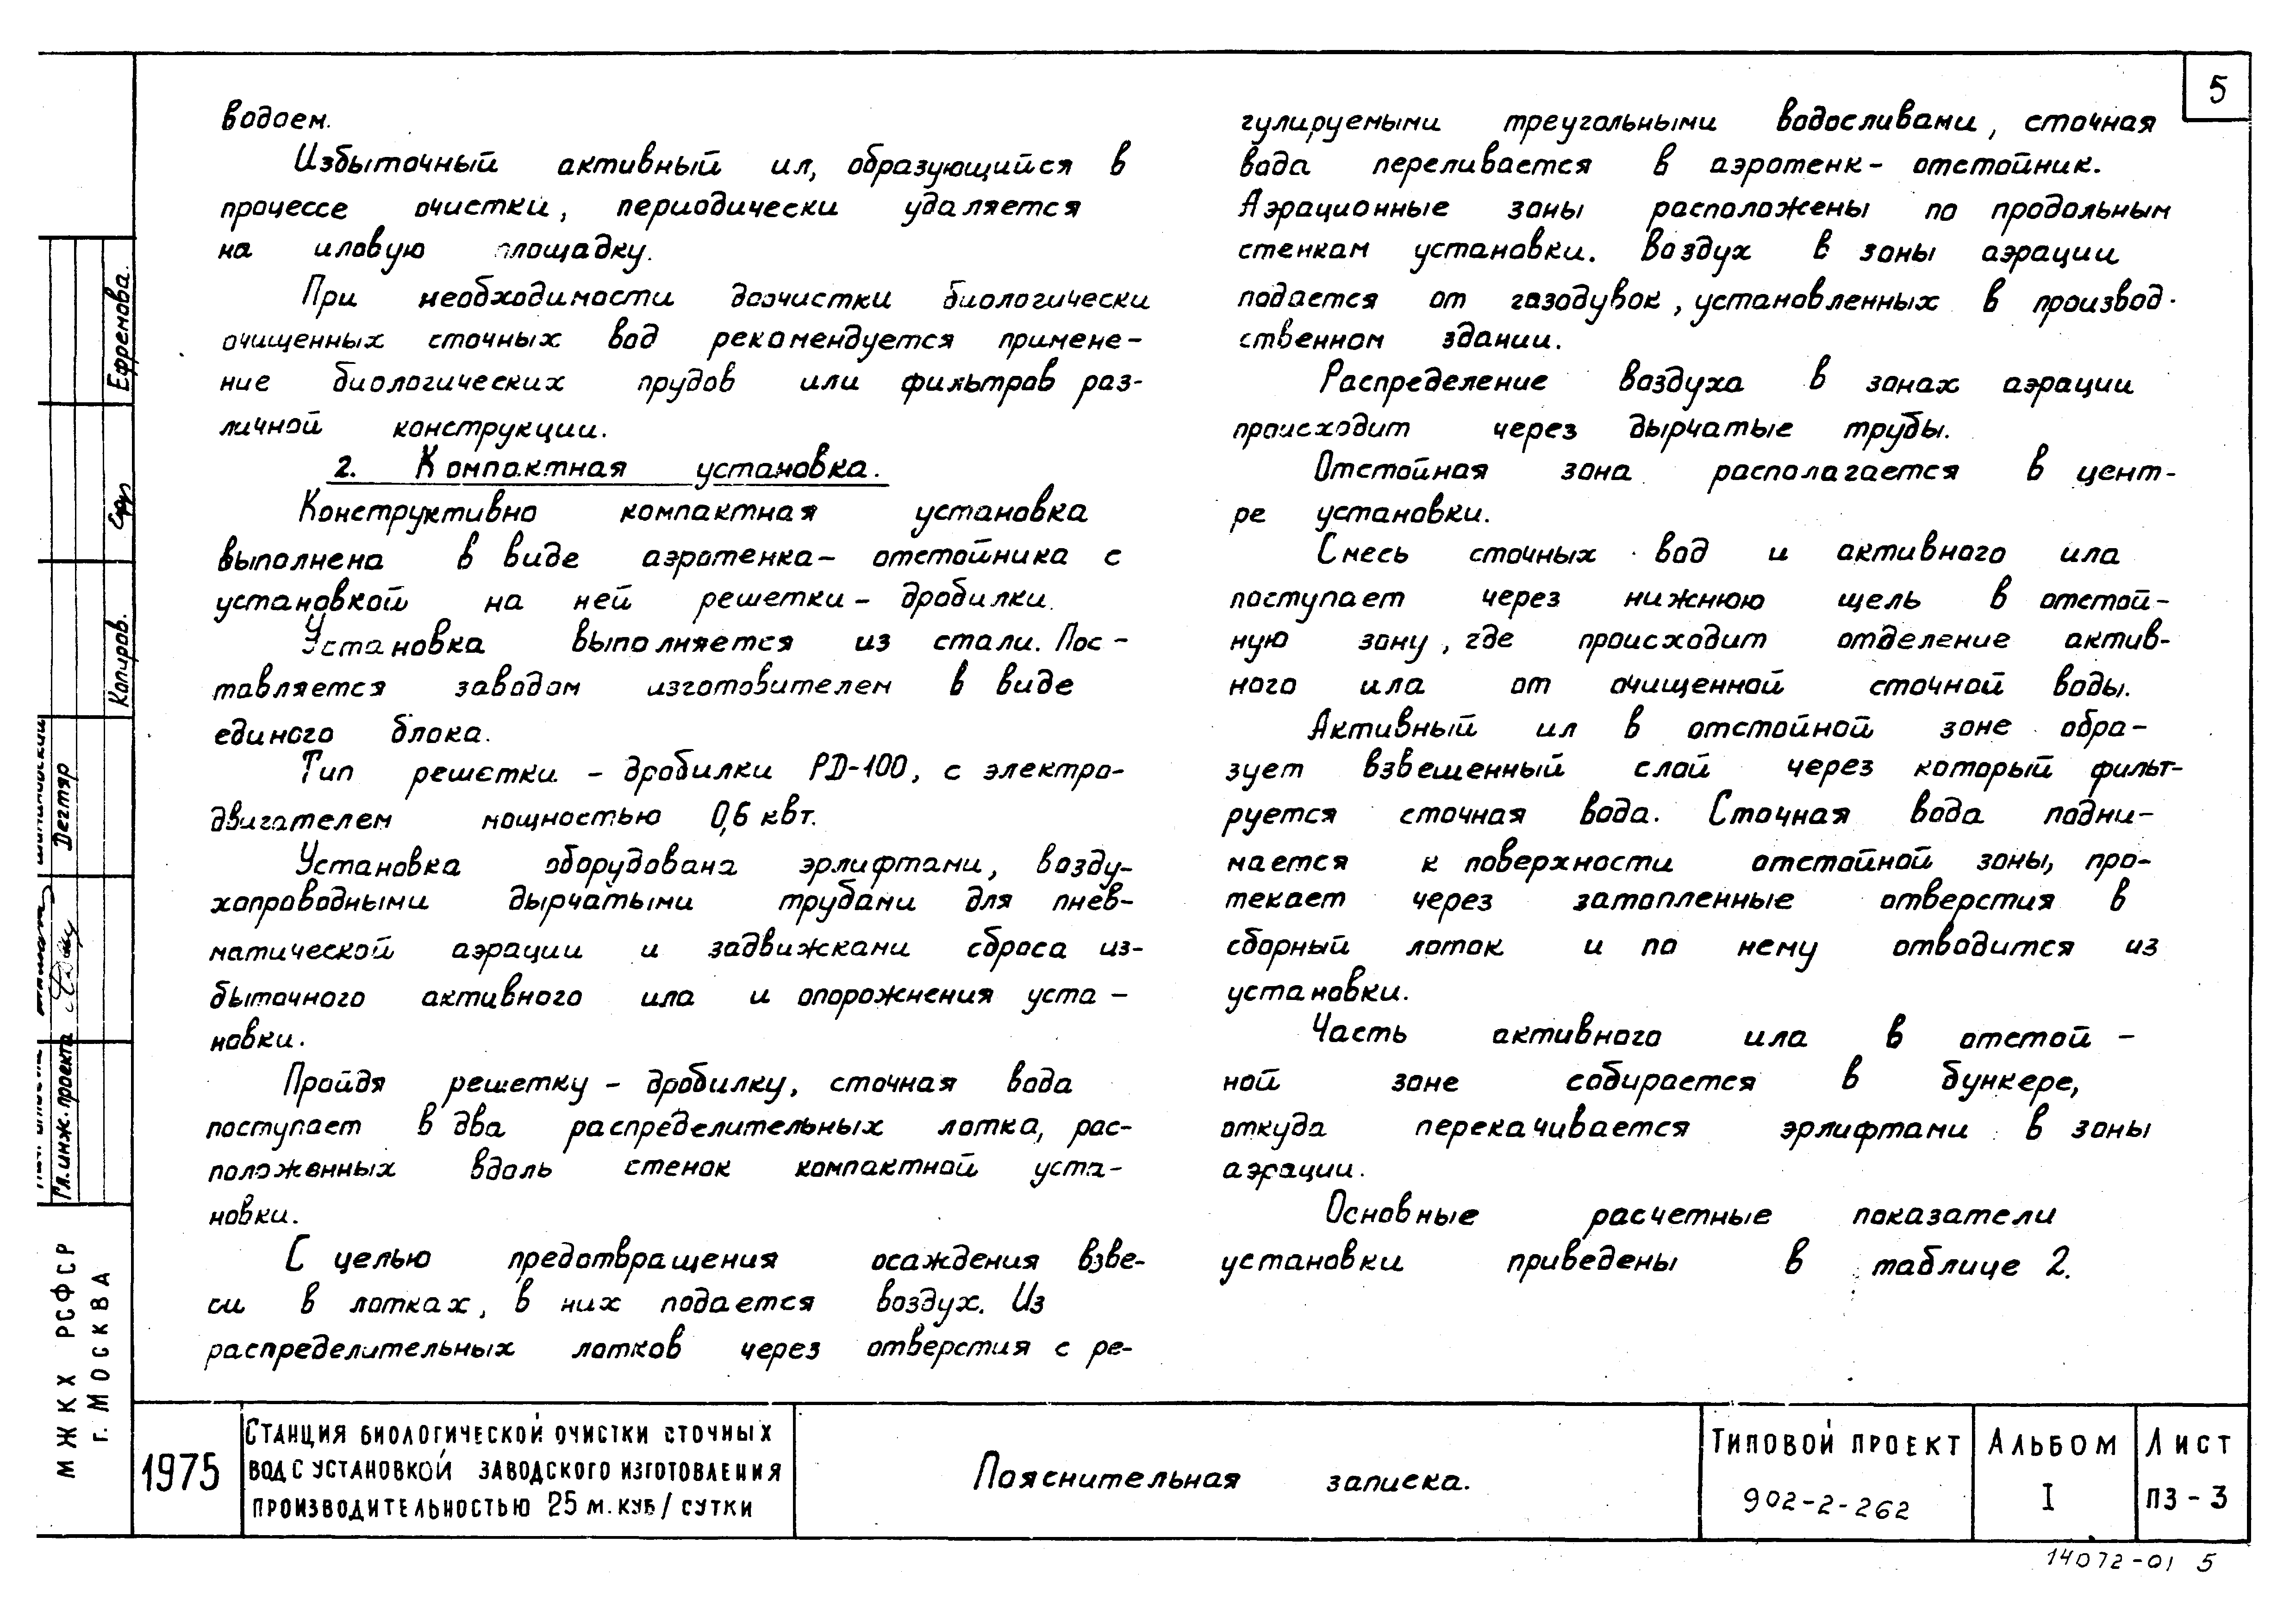 5
водоем.
Избыточный активный ил, образующийся в
процессе очистки, периодически удаляется
на иловую площадку.
При необходимости доочистки биологически
очищенных сточных вод рекомендуется примене-
ние биологических прудов или фильтров раз-
личной конструкции.
2. Компактная установка.
Конструктивно компактная установка
выполнена в виде аэротенка- отстойника с
установкой на ней решетки - дробилки.
Установка выполняется из стали. Пос-
тавляется заводом изготовителем в виде
единого блока.
Тип решетки - дробилки РД-100, с электро-
двигателем мощностью 0,6 квт.
Установка оборудована эрлифтами, возду-
хопроводными дырчатыми трубами для пнев-
матической аэрации и задвижками сброса из-
быточного активного ила и опорожнения уста-
новки.
Пройдя решетку - дробилку, сточная вода
поступает в два распределительных лотка, рас-
положенных вдоль стенок компактной уста-
новки.
С целью предотвращения осаждения взве-
си в лотках, в них подается воздух. Из
распределительных лотков через отверстия с ре-
гулируемыми треугольными водосливами, сточная
вода переливается в аэротенк- отстойник.
Аэрационные зоны расположены по продольным
стенкам установки. Воздух в зоны аэрации
подается от газодувок, установленных в производ-
ственном здании.
Распределение воздуха в зонах аэрации
происходит через дырчатые трубы.
Отстойная зона располагается в цент-
ре установки.
Смесь сточных вод и активного ила
поступает через нижнюю щель в отстой-
ную зону, где происходит отделение актив-
ного ила от очищенной сточной воды.
Активный ил в отстойной зоне обра-
зует взвешенный слой через который фильт-
руется сточная вода. Сточная вода подни-
мается к поверхности отстойной зоны, про-
текает через затопленные отверстия в
сборный лоток и по нему отводится из
установки.
Часть активного ила в отстой -
ной зоне собирается в бункере,
откуда перекачивается эрлифтами в зоны
аэрации.
Основные расчетные показатели
установки приведены в таблице 2.
Ефремова.
Копиров.
Дегтяр
Гл. инж. проекта
МЖКХ РСФСР
г. МОСКВА
1975
СТАНЦИЯ БИОЛОГИЧЕСКОЙ ОЧИСТКИ СТОЧНЫХ
ВОД С УСТАНОВКОЙ ЗАВОДСКОГО ИЗГОТОВЛЕНИЯ
ПРОИЗВОДИТЕЛЬНОСТЬЮ 25 М.КУБ/СУТКИ
Пояснительная записка.
ТИПОВОЙ ПРОЕКТ
902-2-262
АЛЬБОМ
I
ЛИСТ
ПЗ-3
14072-01 5